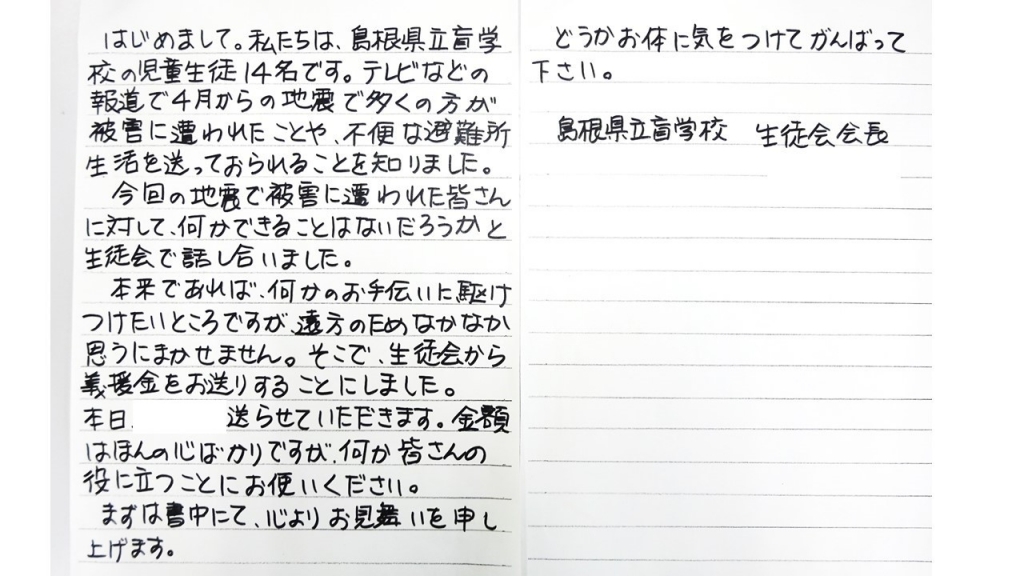 はじめまして。私たちは、島根県立盲学
校の児童生徒14名です。テレビなどの
報道で4月からの地震で多くの方が
被害に遭われたことや、不便な避難所
生活を送っておられることを知りました。
今回の地震で被害に遭われた皆さん
に対して、何かできることはないだろうかと
生徒会で話し合いました。
本来であれば、何かのお手伝いに駆け
つけたいところですが、遠方のためなかなか
思うにまかせません。そこで、生徒会から
義援金をお送りすることにしました。
本日、送らせていただきます。金額
はほんの心ばかりですが、何か皆さんの
役に立つことにお使いください。
まずは書中にて、心よりお見舞いを申し
上げます。
どうかお体に気をつけてがんばって
下さい。
島根県立盲学校 生徒会会長